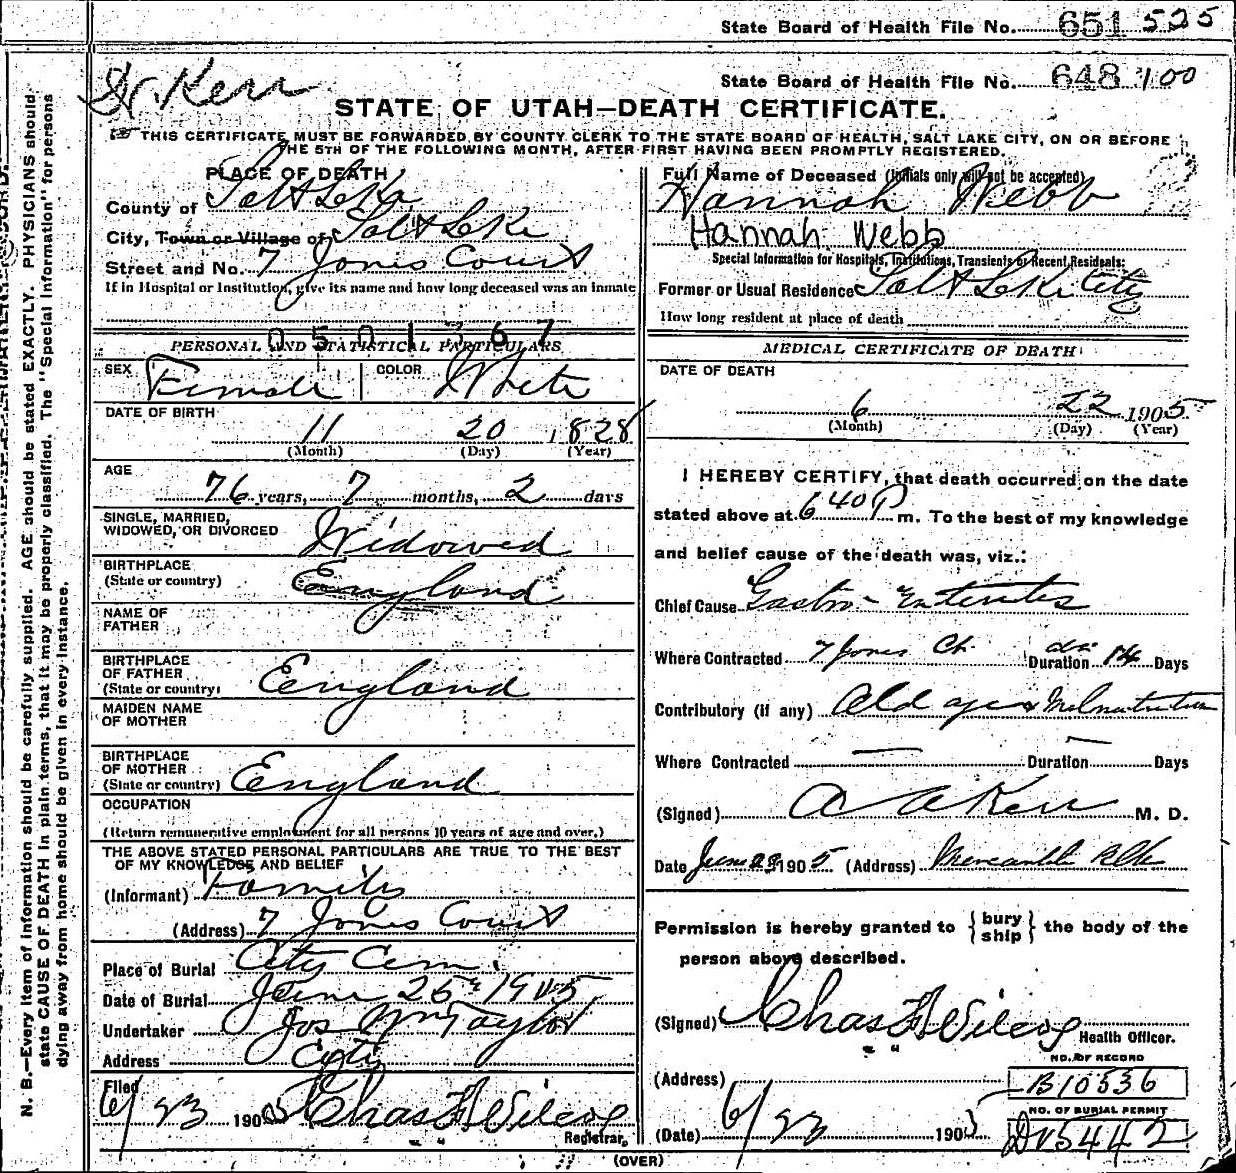 State Board of Health File No. 651 525
State Board of Health File No. 648 100
Dr. Kerr
STATE OF UTAH—DEATH CERTIFICATE.
THIS CERTIFICATE MUST BE FORWARDED BY COUNTY CLERK TO THE STATE BOARD OF HEALTH, SALT LAKE CITY, ON OR BEFORE
THE 5TH OF THE FOLLOWING MONTH, AFTER FIRST HAVING BEEN PROMPTLY REGISTERED.
N. B.—Every item of information should be carefully supplied. AGE should be stated EXACTLY. PHYSICIANS should
state CAUSE OF DEATH in plain terms, that it may be properly classified. The "Special Information" for persons
dying away from home should be given in every instance.
PLACE OF DEATH
County of Salt Lake
City, Town or Village of Salt Lake
Street and No. 7 Jones Court
If in Hospital or Institution, give its name and how long deceased was an inmate
0501 67
PERSONAL AND STATISTICAL PARTICULARS
SEX Female COLOR White
DATE OF BIRTH
11 20 1828
(Month) (Day) (Year)
AGE
76 years, 7 months, 2 days
SINGLE, MARRIED,
WIDOWED, OR DIVORCED Widowed
BIRTHPLACE
(State or country) England
NAME OF
FATHER
BIRTHPLACE
OF FATHER
(State or country) England
MAIDEN NAME
OF MOTHER
BIRTHPLACE
OF MOTHER
(State or country) England
OCCUPATION
(Return remunerative employment for all persons 10 years of age and over.)
THE ABOVE STATED PERSONAL PARTICULARS ARE TRUE TO THE BEST
OF MY KNOWLEDGE AND BELIEF
(Informant) Family
(Address) 7 Jones Court
Place of Burial City Cem.
Date of Burial June 25th 1905
Undertaker Jos Wm Taylor
Address City
Filed
6/23 1905 Chas F Wilcox
Registrar.
Full Name of Deceased (Initials only will not be accepted)
Hannah Webb
Hannah Webb
Special Information for Hospitals, Institutions, Transients or Recent Residents:
Former or Usual Residence Salt Lake City
How long resident at place of death
MEDICAL CERTIFICATE OF DEATH
DATE OF DEATH
6 22 1905
(Month) (Day) (Year)
I HEREBY CERTIFY, that death occurred on the date
stated above at 6 40 P m. To the best of my knowledge
and belief cause of the death was, viz.:
Chief Cause Gastro-Enteritis
Where Contracted 7 Jones Ct. Duration 14 Days
Contributory (if any) Old age & Malnutrition
Where Contracted — Duration — Days
(Signed) A A Kerr M. D.
Date June 23 1905 (Address) Mercantile Blk
Permission is hereby granted to { bury ship } the body of the
person above described.
(Signed) Chas F Wilcox
Health Officer.
(Address)
NO. OF RECORD
B10536
NO. OF BURIAL PERMIT
(Date) 6/23 1905
(OVER)